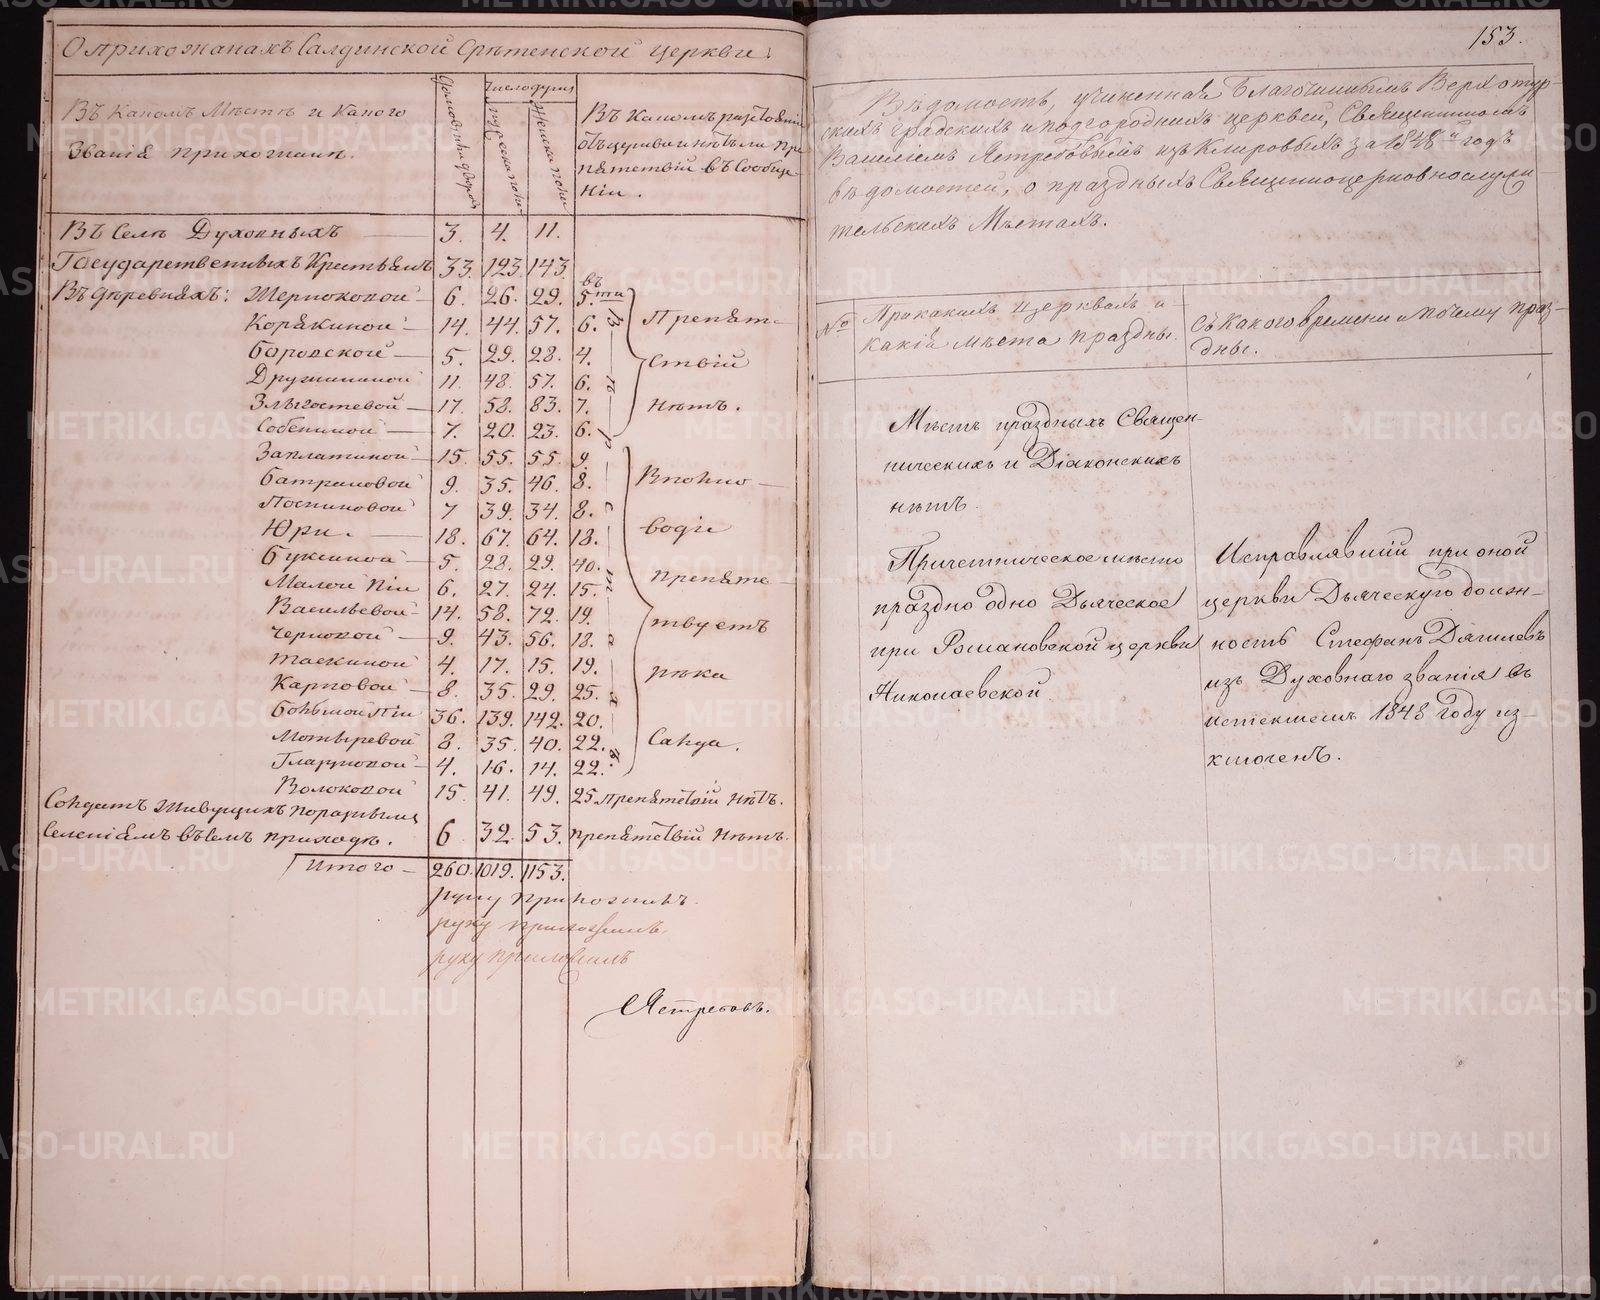 О прихожанахъ Салдинской Срѣтенской церкви.
Въ Какомъ Мѣстѣ и Какого
Званія прихожане.
Число душъ
Въ Какомъ разстояніи
отъ церкви и нѣтъ ли пре
пятствій въ сообще-
ніи.
Въ Селѣ Духовныхъ 3. 4. 11.
Государственныхъ Крестьянъ 33. 123. 143.
Въ деревняхъ: 6. 26. 29. въ 5.ти
Корякиной 14. 44. 57. 6.
Боровской 5. 29. 28. 4.
Дружининой 11. 48. 57. 6.
Злыгостевой 17. 58. 83. 7.
Собениной 7. 20. 23. 6.
Препят-
ствій
нѣтъ.
Заплатиной 15. 55. 55. 9.
Батраковой 9. 35. 46. 8.
7 39. 34. 8.
Юри. 18. 67. 64. 18.
Букиной 5. 28. 29. 40.
Малой Піи 6. 27. 24. 15.
Васильевой 14. 58. 72. 19.
Черновой 9. 43. 56. 18.
Таскиной 4. 17. 15. 19.
Карповой 8. 35. 29. 25.
Большой Піи 36. 139. 142. 20.
Мотыревой 8. 35. 40. 22.
Глазуновой 4. 16. 14. 22.
верстахъ
Въ полно-
водіе
препятс-
твуетъ
рѣка
Салда.
Волоковой 15. 41. 49. 25 препятствій нѣтъ.
Солдатъ живущихъ по разнымъ
селеніямъ въ семъ приходѣ. 6 32. 53. препятствій нѣтъ.
Итого 260. 1019. 1153.
руку приложилъ.
руку приложилъ.
руку приложилъ
Ястребовъ.
153.
Вѣдомость, учиненная Благочиннымъ Верхотур-
скихъ градскихъ и подгородныхъ церквей, Священникомъ
Василіемъ Ястребовымъ изъ Клировыхъ за 1848й годъ
вѣдомостей, о праздныхъ Священноцерковнослужи
тельскихъ Мѣстахъ.
№
При какихъ Церквахъ и
какія мѣста праздны.
Съ Какого времени и почему праз-
дны.
Мѣстъ праздныхъ Священ-
ническихъ и Діаконскихъ
нѣтъ.
Причетническое мѣсто
праздно одно Дьяческое
при Романовской церкви
Николаевской
Исправлявшій при оной
церкви Дьяческую долж-
ность Стефанъ Дягилевъ
изъ Духовнаго званія въ
истекшемъ 1848 году из-
ключенъ.
METRIKI.GASO-URAL.RU